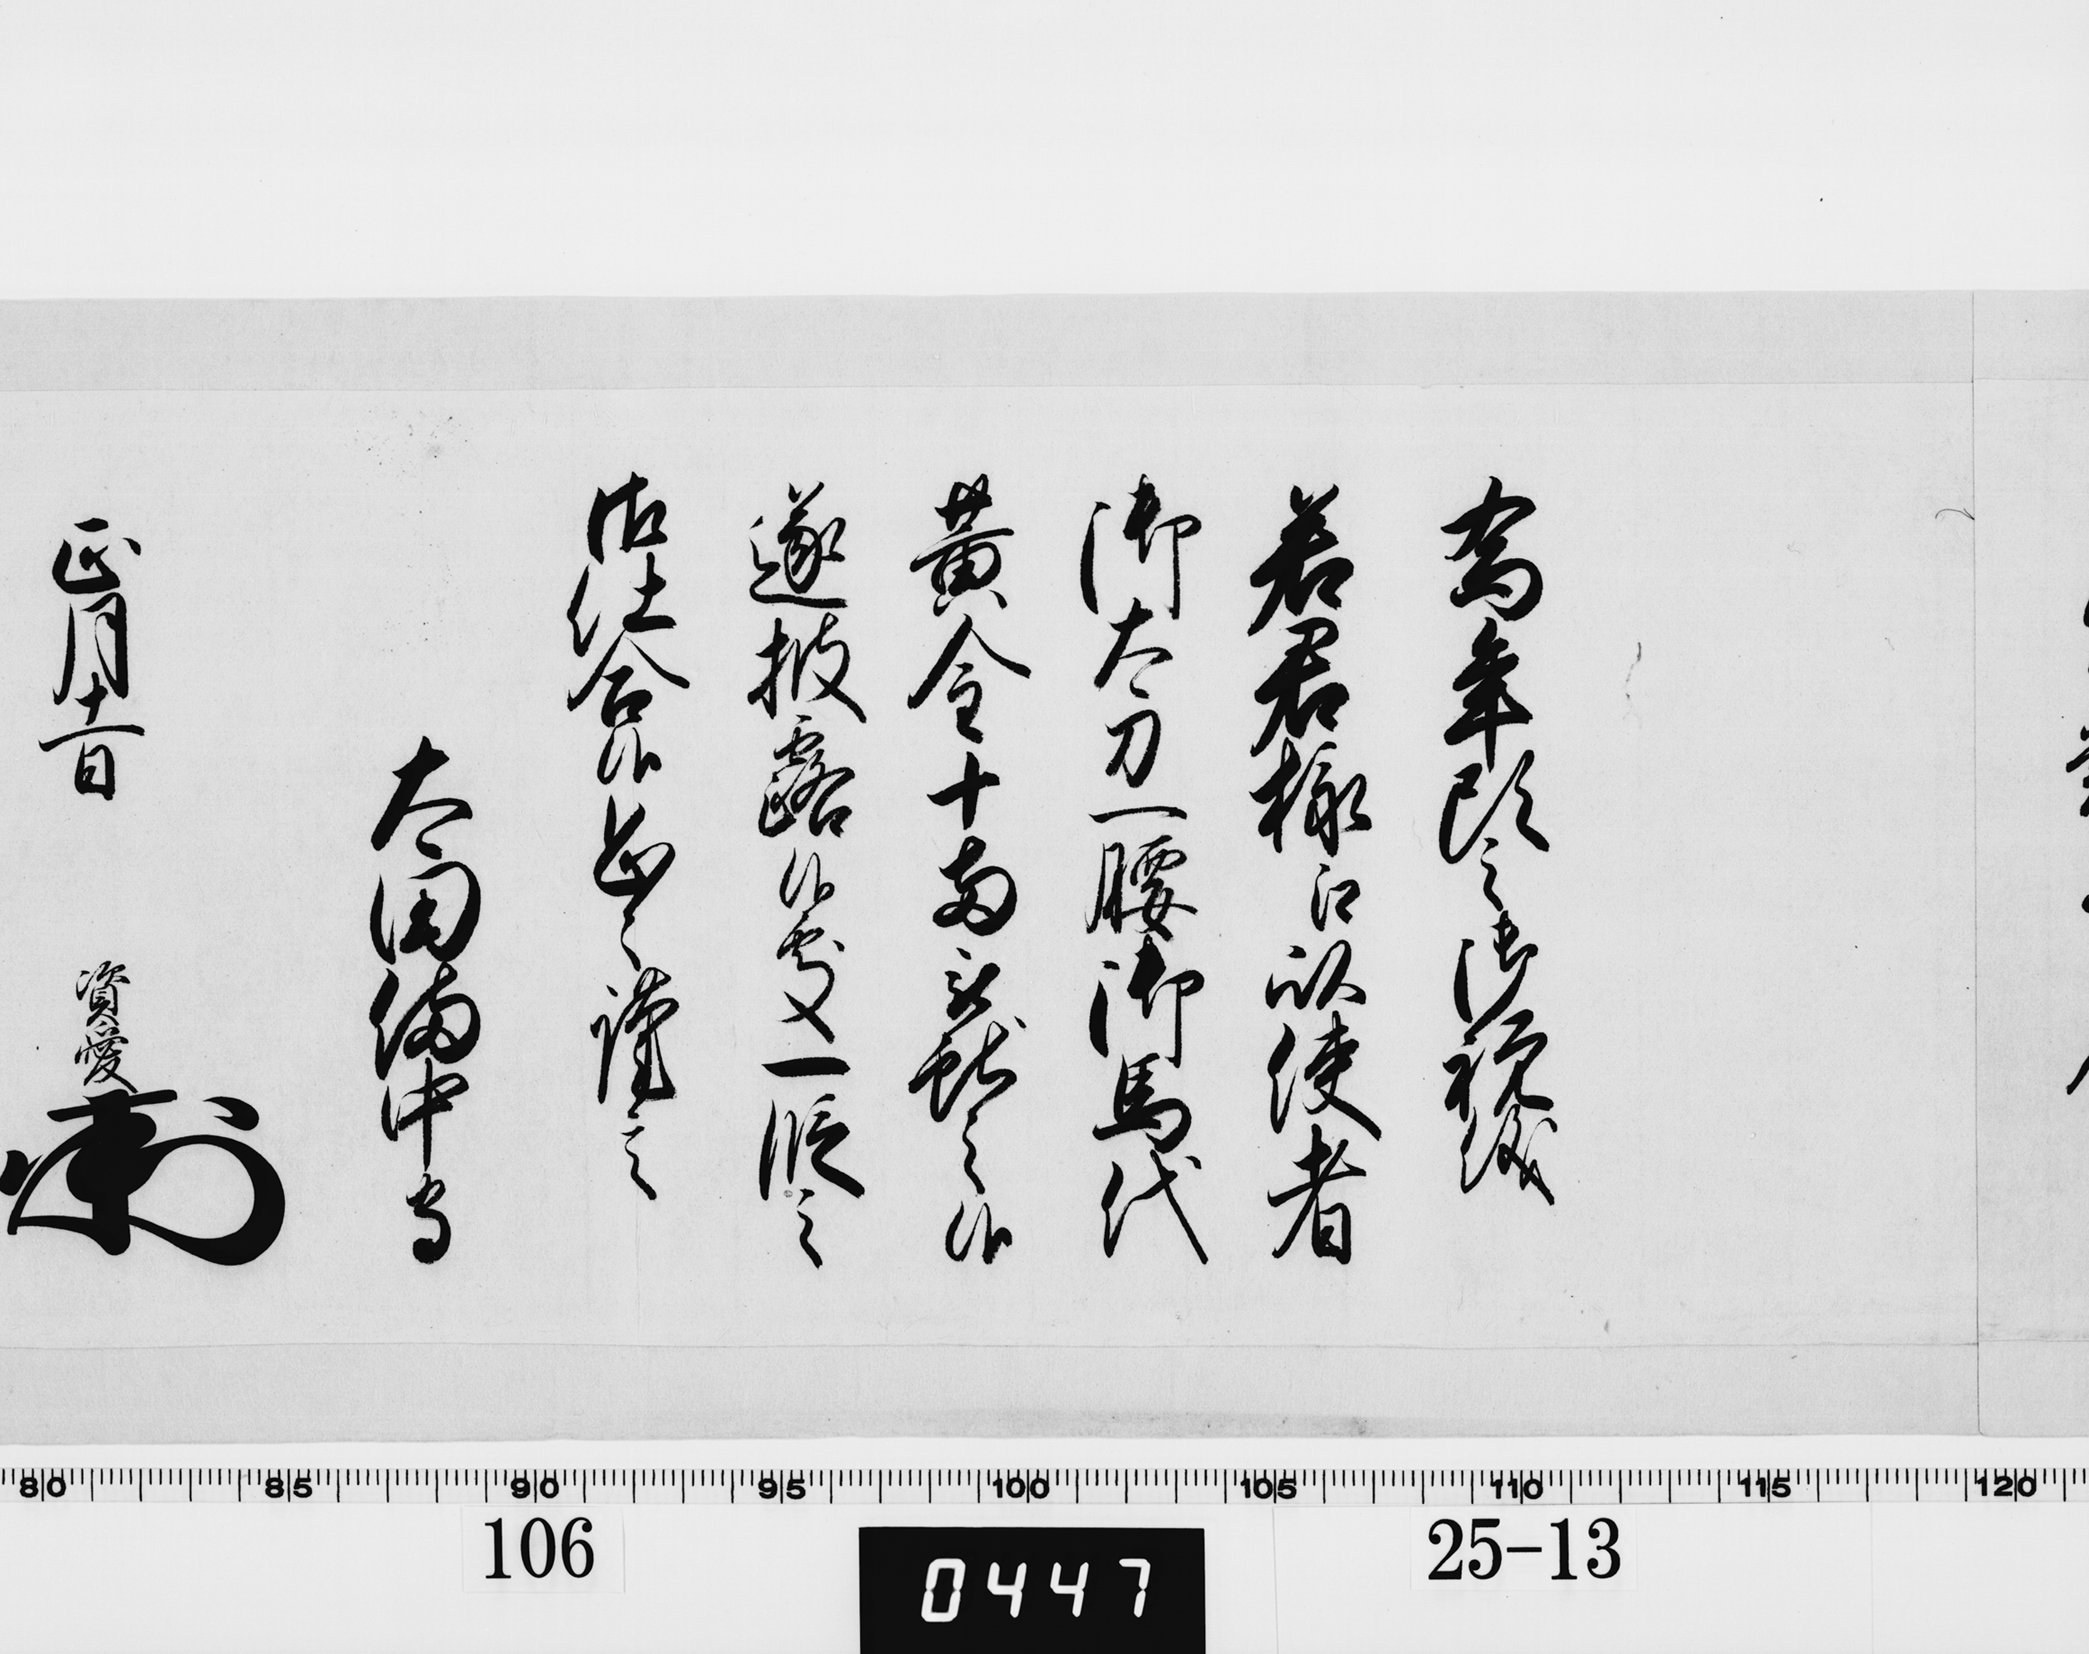 為年頭之御祝儀
若君様江以使者
御太刀一腰御馬代
黄金十両被献之候
遂披露候処一段之
御仕合候恐々謹言
太田備中守
正月十一日 資愛
80 85 90 95 100 105 110 115 120
106
0447
25-13